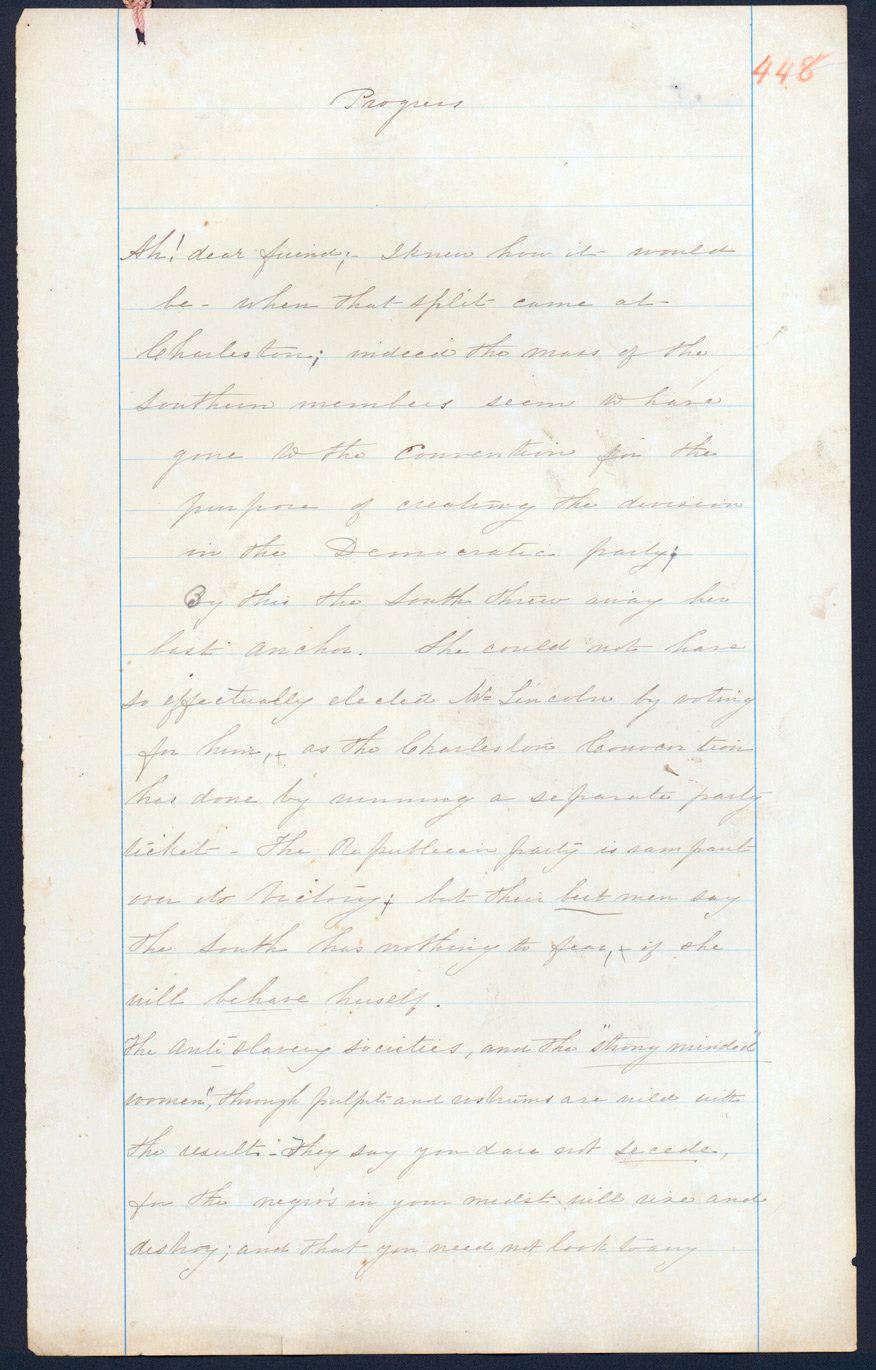 448
Progress
Ah! dear friend;- I knew how it would
be - when that split came at
Charleston; indeed the mass of the
Southern members seem to have
gone to the Convention for the
purpose of creating the division
in the Democratic party;
By this the South threw away her
last anchor. She could not have
so effectually elected Mr Lincoln by voting
for him, as the Charleston Convention
has done by running a separate party
ticket - The Republican party is rampant
over its victory; but their best men say
the South has nothing to fear, if she
will behave herself.
The Anti Slavery societies, and the "strong minded"
women", through pulpits and rostrums are wild with
the result - They say you dare not secede,
for the negro's in your midst will rise and
destroy; and that you need not look to any